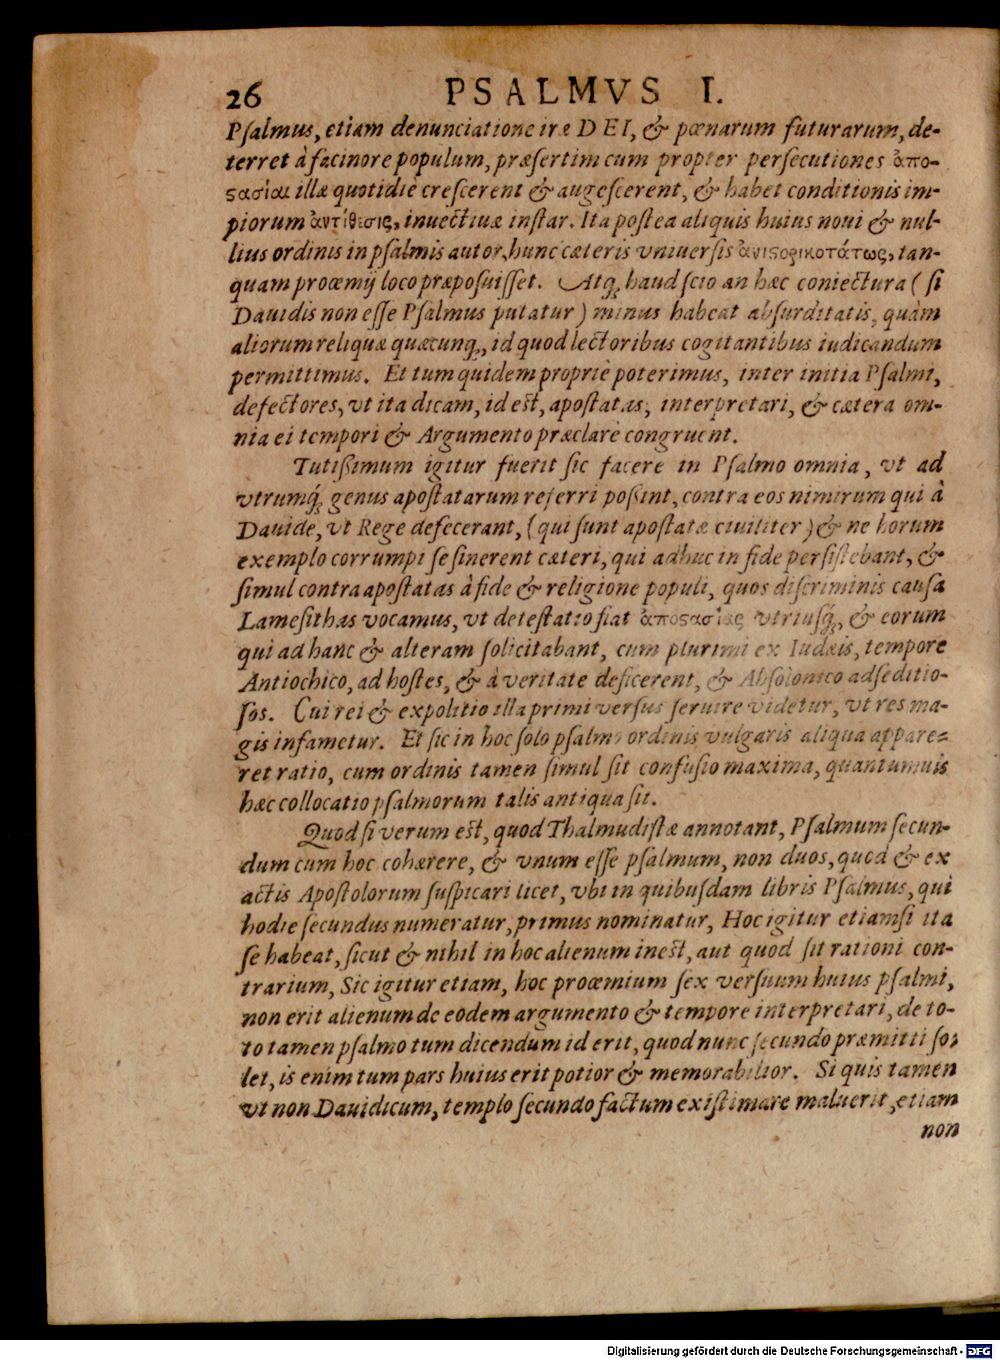 26 PSALMVS I.
Psalmus, etiam denunciatione iræ DEI, & pœnarum futurarum, de-
terret à facinore populum, præsertim cum propter persecutiones ἀπο-
ςασίαι illæ quotidie crescerent & augescerent, & habet conditionis im-
piorum ἀντίθεσις, inuectiuæ instar. Ita postea aliquis huius noui & nul-
lius ordinis in psalmis autor, hunc cæteris vniuersis ἀνιςορικοτάτως, tan-
quam proœmij loco præposuisset. Atq; haud scio an hæc coniectura (si
Dauidis non esse Psalmus putatur) minus habeat absurditatis, quàm
aliorum reliquæ quæcunq;, id quod lectoribus cogitantibus iudicandum
permittimus. Et tum quidem propriè poterimus, inter initia Psalmi,
defectores, vt ita dicam, id est, apostatas, interpretari, & cætera om-
nia ei tempori & Argumento præclarè congruent.
Tutißimum igitur fuerit sic facere in Psalmo omnia, vt ad
vtrumq́; genus apostatarum referri poßint, contra eos nimirum qui à
Dauide, vt Rege defecerant, (qui sunt apostatæ ciuiliter) & ne horum
exemplo corrumpi se sinerent cæteri, qui adhuc in fide persistebant, &
simul contra apostatas à fide & religione populi, quos discriminis causa
Lamesithas vocamus, vt detestatio fiat ἀποςασίας vtriusq́;, & eorum
qui ad hanc & alteram solicitabant, cum plurimi ex Iudæis, tempore
Antiochico, ad hostes, & à veritate deficerent, & Absolonico ad seditio-
sos. Cui rei & expolitio illa primi versus seruire videtur, vt res ma-
gis infametur. Et sic in hoc solo psalmo ordinis vulgaris aliqua appare-
ret ratio, cum ordinis tamen simul sit confusio maxima, quantumuis
hæc collocatio psalmorum talis antiqua sit.
Quod si verum est, quod Thalmudistæ annotant, Psalmum secun-
dum cum hoc cohærere, & vnum esse psalmum, non duos, quod & ex
actis Apostolorum suspicari licet, vbi in quibusdam libris Psalmus, qui
hodie secundus numeratur, primus nominatur, Hoc igitur etiamsi ita
se habeat, sicut & nihil in hoc alienum inest, aut quod sit rationi con-
trarium, Sic igitur etiam, hoc proœmium sex versuum huius psalmi,
non erit alienum de eodem argumento & tempore interpretari, de to-
to tamen psalmo tum dicendum id erit, quod nunc secundo præmitti so-
let, is enim tum pars huius erit potior & memorabilior. Si quis tamen
vt non Dauidicum, templo secundo factum existimare maluerit, etiam
non
Digitalisierung gefördert durch die Deutsche Forschungsgemeinschaft - DFG